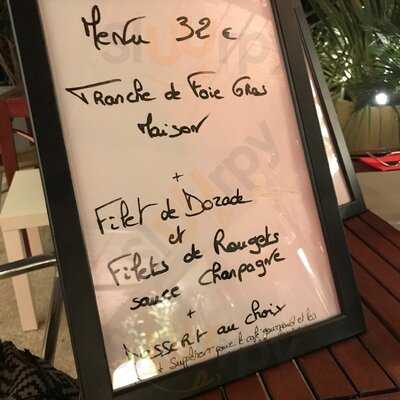 Menu 32 €
Tranche de Foie Gras
Maison
+
Filet de Dorade
et
Filets de Rougets
sauce Champagne
+
Dessert au choix
+ Supplément pour le café gourmand et les